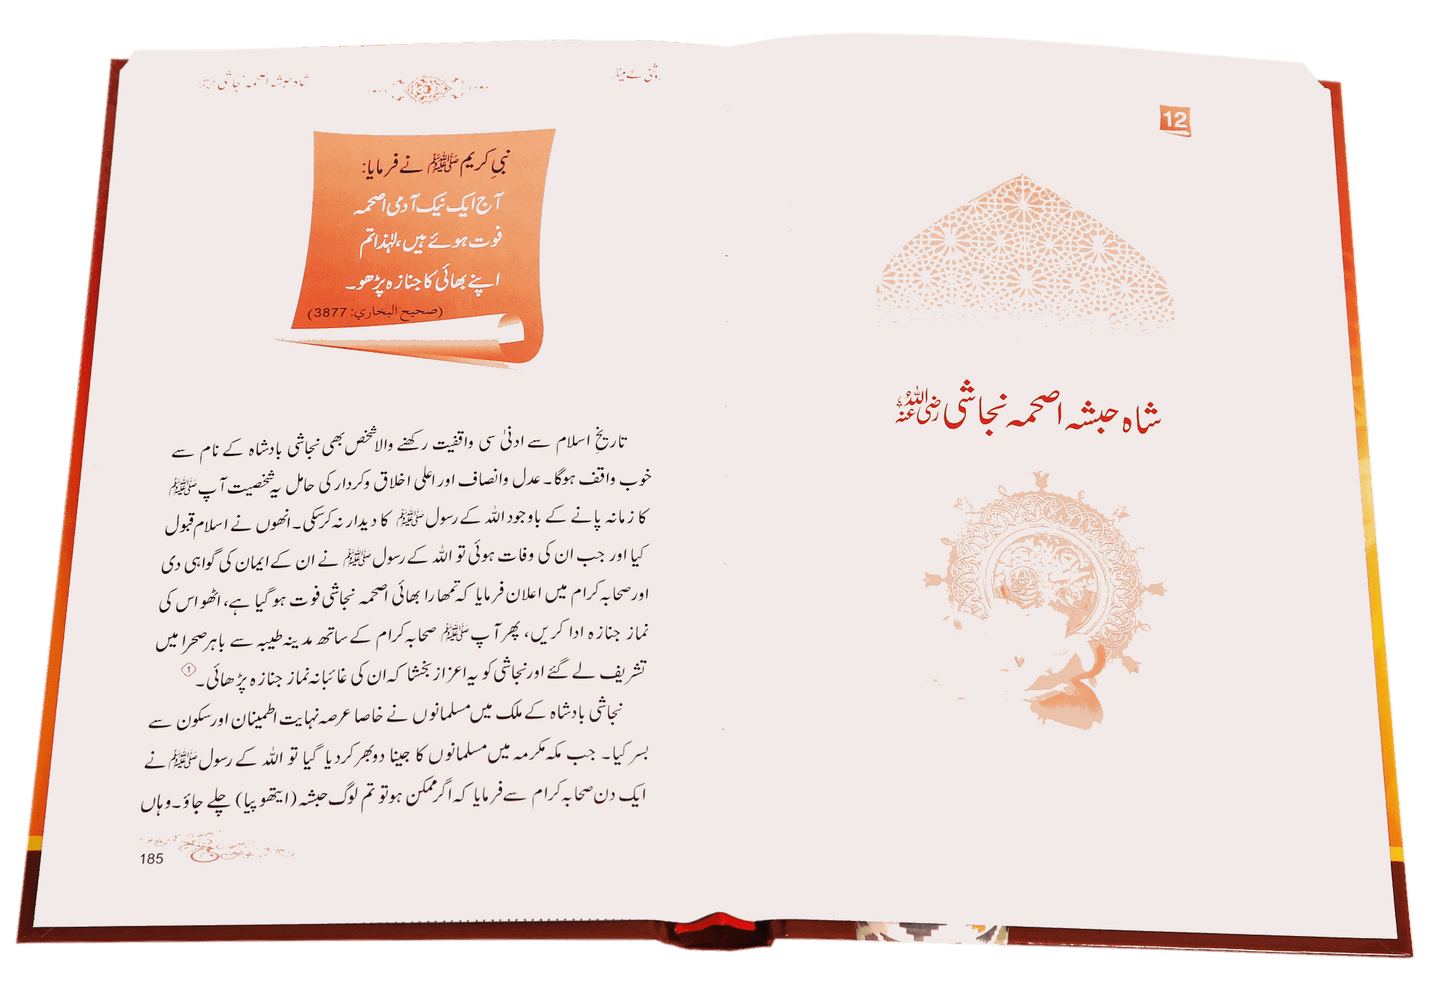 12
شاہ حبشہ اصحمہ نجاشی رضی اللہ عنہ
روشنی کے مینار
شاہ حبشہ اصحمہ نجاشی
نبیِ کریم ﷺ نے فرمایا:
آج ایک نیک آدمی اصحمہ
فوت ہوئے ہیں، لہٰذا تم
اپنے بھائی کا جنازہ پڑھو۔
(صحيح البخاري: 3877)
تاریخِ اسلام سے ادنیٰ سی واقفیت رکھنے والا شخص بھی نجاشی بادشاہ کے نام سے
خوب واقف ہوگا۔ عدل وانصاف اور اعلی اخلاق وکردار کی حامل یہ شخصیت آپ ﷺ
کا زمانہ پانے کے باوجود اللہ کے رسول ﷺ کا دیدار نہ کرسکی۔ انھوں نے اسلام قبول
کیا اور جب ان کی وفات ہوئی تو اللہ کے رسول ﷺ نے ان کے ایمان کی گواہی دی
اور صحابہ کرام میں اعلان فرمایا کہ تمھارا بھائی اصحمہ نجاشی فوت ہو گیا ہے، اٹھو اس کی
نماز جنازہ ادا کریں، پھر آپ ﷺ صحابہ کرام کے ساتھ مدینہ طیبہ سے باہر صحرا میں
تشریف لے گئے اور نجاشی کو یہ اعزاز بخشا کہ ان کی غائبانہ نماز جنازہ پڑھائی۔ ①
نجاشی بادشاہ کے ملک میں مسلمانوں نے خاصا عرصہ نہایت اطمینان اور سکون سے
بسر کیا۔ جب مکہ مکرمہ میں مسلمانوں کا جینا دوبھر کردیا گیا تو اللہ کے رسول ﷺ نے
ایک دن صحابہ کرام سے فرمایا کہ اگر ممکن ہو تو تم لوگ حبشہ (ایتھوپیا) چلے جاؤ۔ وہاں
185